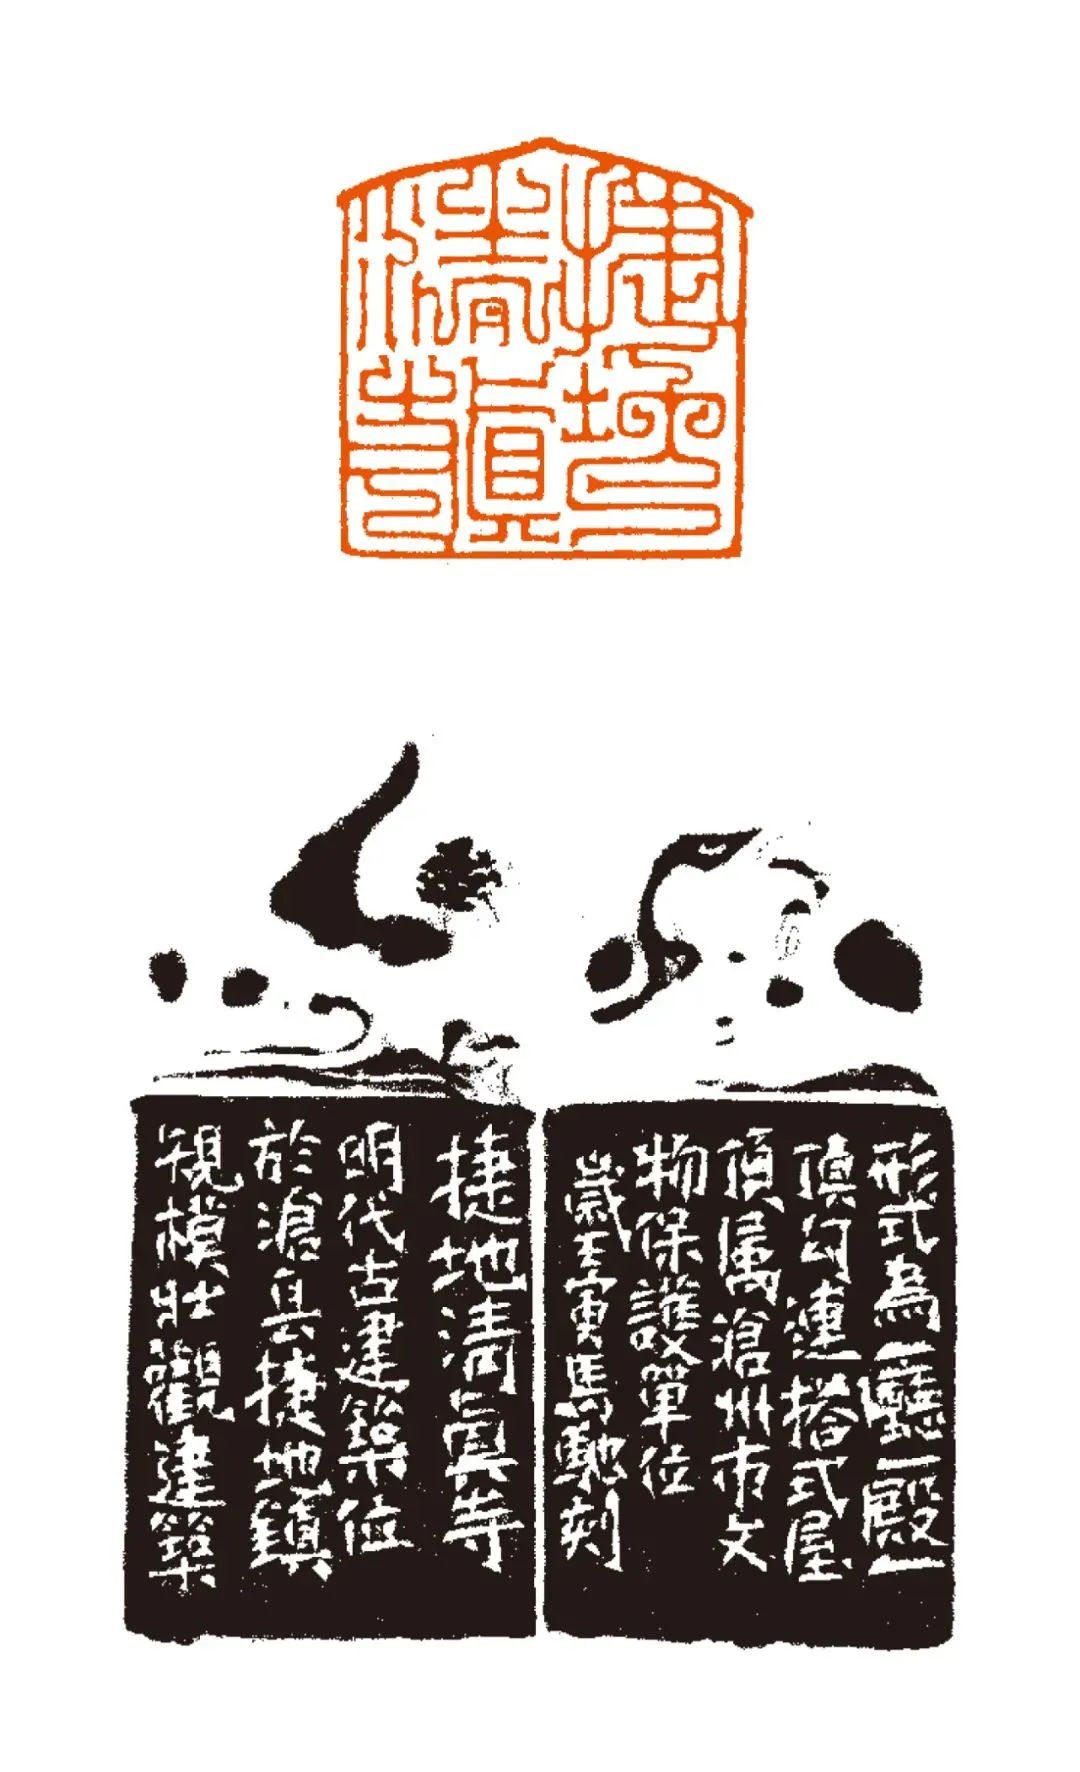 捷地
清眞寺
捷地清眞寺
明代古建築位
於滄县捷地鎮
規模壯觀建築
形式為一廳一殿一
頂勾連搭式屋
頂属滄州市文
物保護單位
歲壬寅馬馳刻